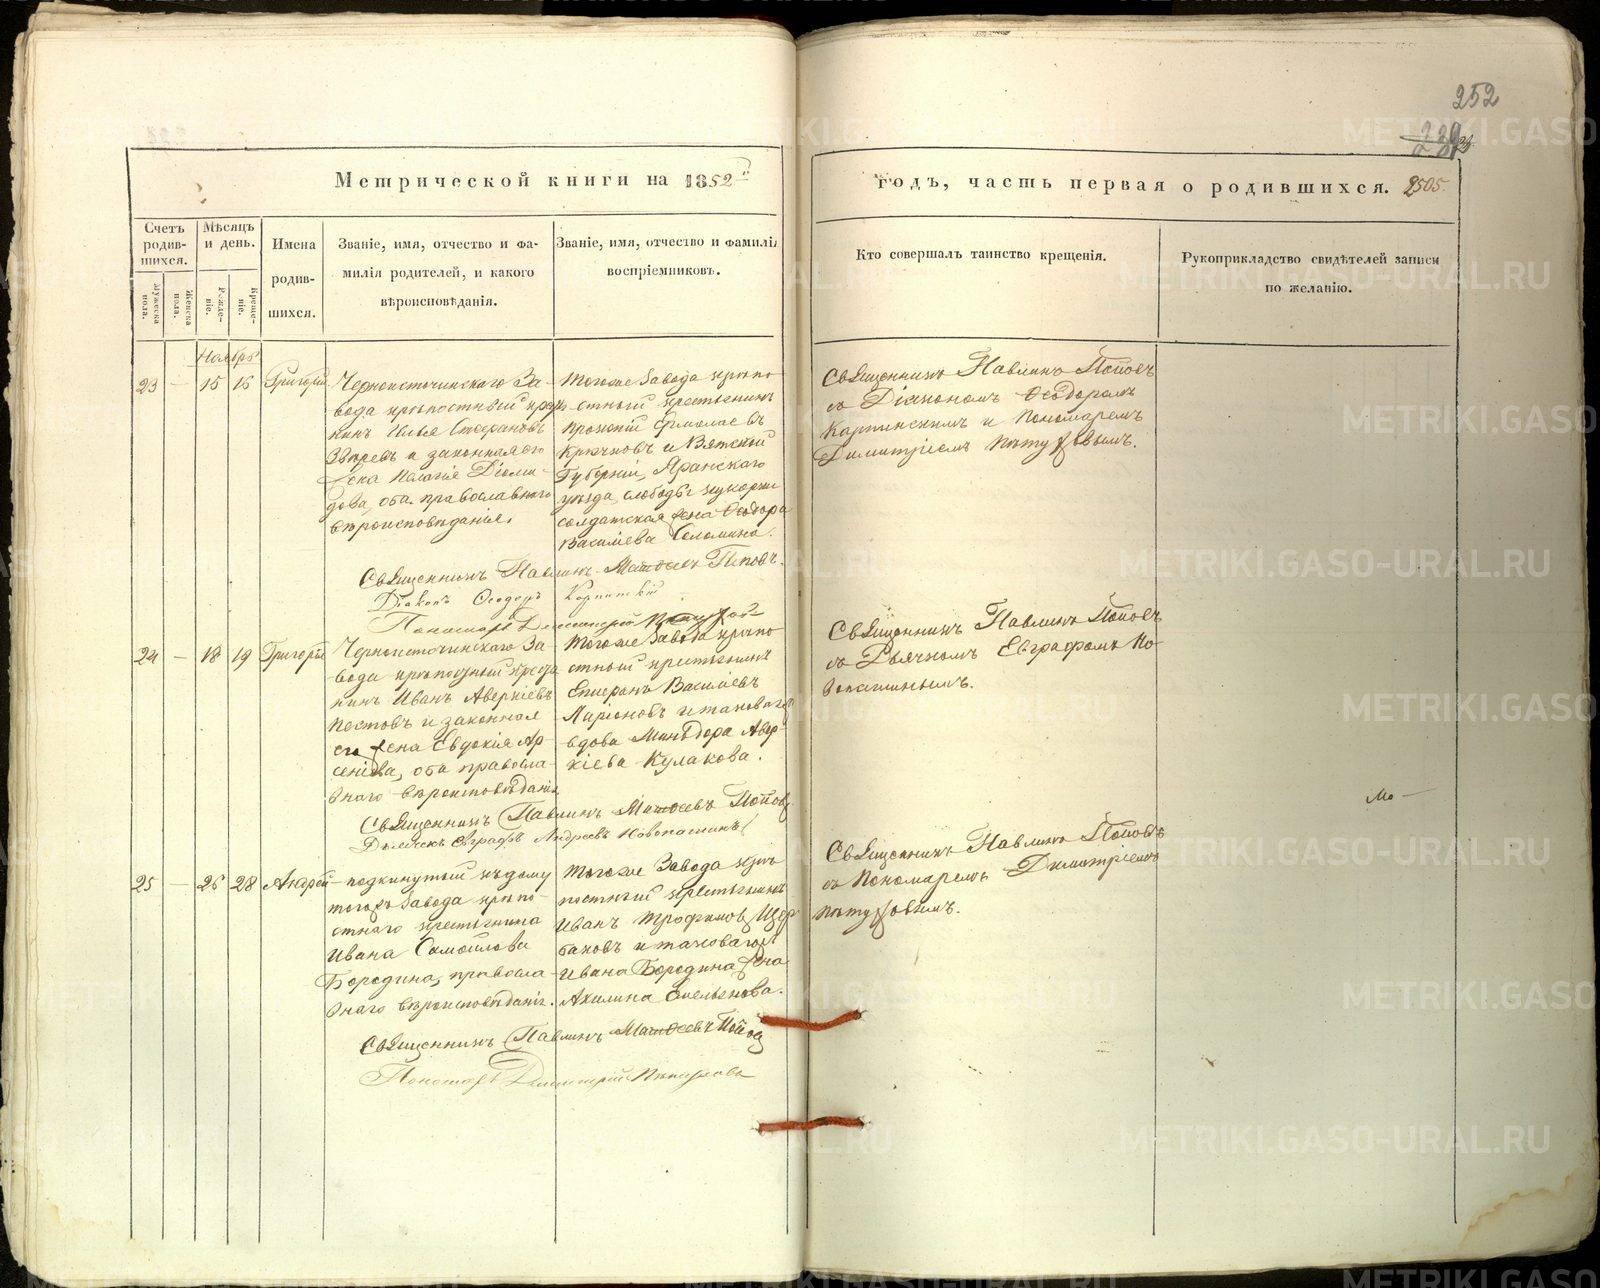 252
Метрической книги на 1852й
годъ, часть первая о родившихся. 2505.
Счетъ родив-шихся.
Мужеска пола.
Женска пола.
Мѣсяцъ и день.
Рожде-ніе.
Креще-ніе.
Имена родив-шихся.
Званіе, имя, отчество и фа-
милія родителей, и какого
вѣроисповѣданія.
Званіе, имя, отчество и фамилія
воспріемниковъ.
Кто совершалъ таинство крещенія.
Рукоприкладство свидѣтелей записи
по желанію.
Ноябрь
23 — 15 16 Григорій
Черноисточинскаго За-
вода крѣпостный крестья
нинъ Илья Стефановъ
Звѣревъ и законная его
жена Пелагія Діоми-
дова, оба православнаго
вѣроисповѣданія.
Тогоже Завода крѣпо
стный крестьянинъ
Прокопій Ермолаевъ
Крючковъ и Вятской
Губерніи, Яранскаго
уѣзда, слободы Кукарки
солдатская жена Ѳеодора
Василіева Соломина.
Священникъ Павлинъ Поповъ
съ Діакономъ Ѳеодоромъ
Карпинскимъ и Пономаремъ
Димитріемъ Пѣтуховымъ.
Священникъ Павлинъ Матѳеевъ Поповъ.
Діаконъ Ѳеодоръ Карпинскій
Пономарь Димитрій Пѣтуховъ
24 — 18 19 Григорій
Черноисточинскаго За-
вода крѣпостный крестья
нинъ Иванъ Аверкіевъ
Пестовъ и законная
его жена Евдокія Ар-
сеніева, оба правосла-
внаго вѣроисповѣданія
Тогоже Завода крѣпо
стный крестьянинъ
Епифанъ Василіевъ
Ларіоновъ и таковагоже
вдова Минѳдора Авер-
кіева Кулакова.
Священникъ Павлинъ Поповъ
съ Дьячкомъ Евграфомъ Но-
вопашинымъ.
Священникъ Павлинъ Матѳеевъ Поповъ
Дьячекъ Евграфъ Андреевъ Новопашинъ
25 — 26 28 Андрей
подкинутый къ дому
тогожъ Завода крѣпо-
стнаго крестьянина
Ивана Самойлова
Бородина, правосла-
внаго вѣроисповѣданія.
Тогоже Завода крѣ
постный крестьянинъ
Иванъ Трофимовъ Щер
баковъ и таковагожъ
Ивана Бородина жена
Акилина Емельянова.
Священникъ Павлинъ Поповъ
съ Пономаремъ Димитріемъ
Пѣтуховымъ.
Священникъ Павлинъ Матѳеевъ Поповъ
Пономарь Димитрій Пѣтуховъ
METRIKI.GASO-URAL.RU